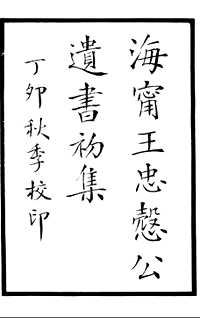 海甯王忠慤公
遺書初集
丁卯秋季校印